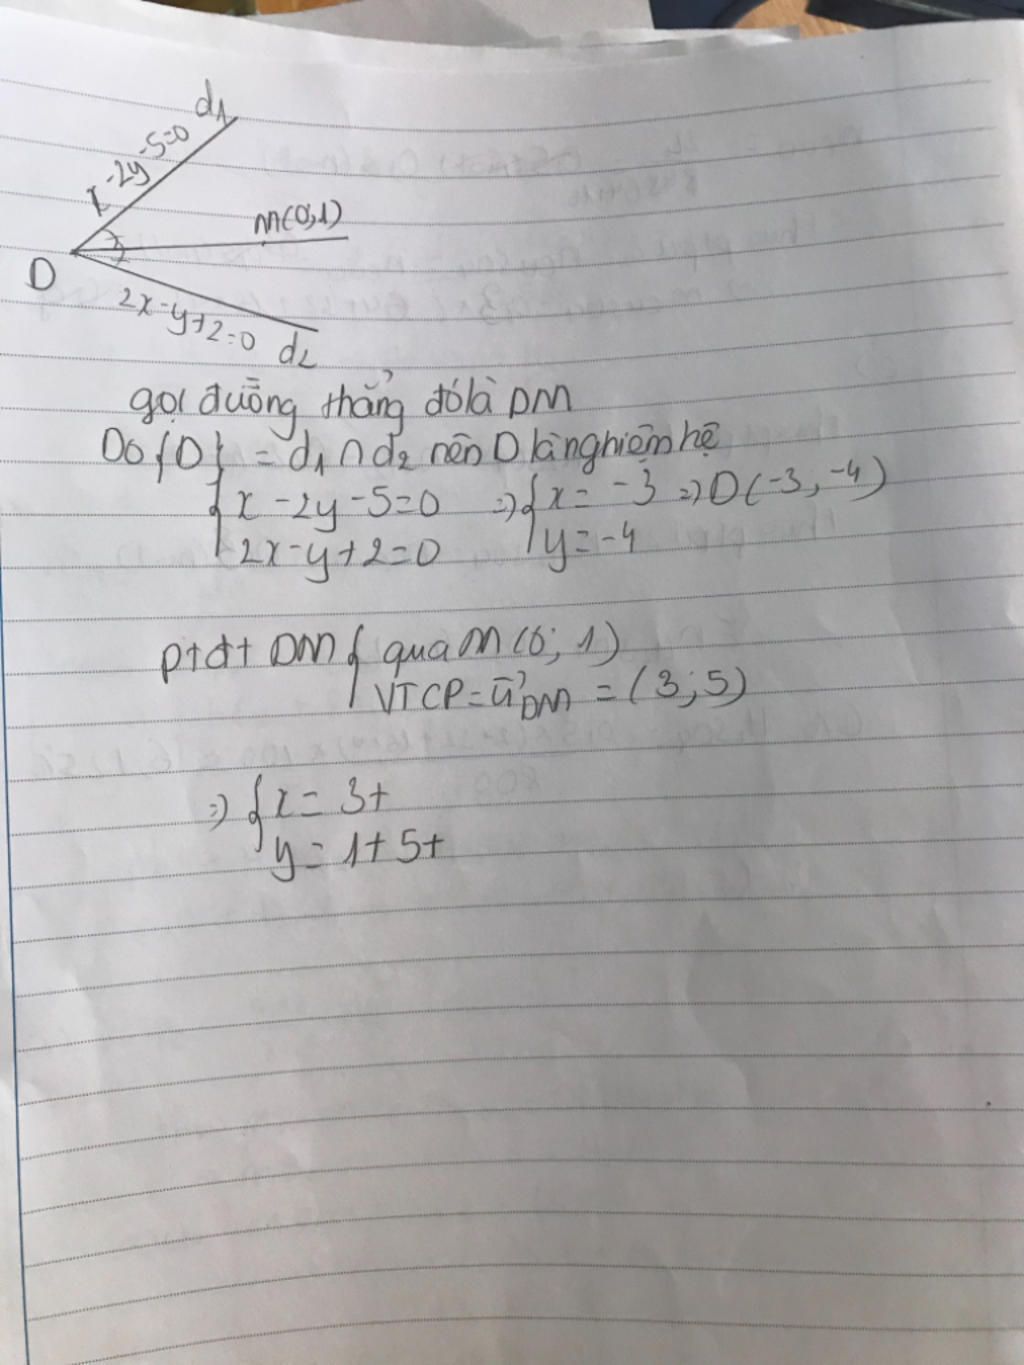 d₁
x-2y-5=0
M(0,1)
D
2x-y+2=0
d₂
gọi đường thẳng đó là DM
Do {D} = d₁ ∩ d₂ nên D là nghiệm hệ
{x -2y -5=0 => {x= -3 => D(-3, -4)
{2x-y+2=0 {y=-4
ptđt DM { qua M(0; 1)
VTCP=u⃗DM = (3; 5)
=> {x= 3t
y= 1+5t